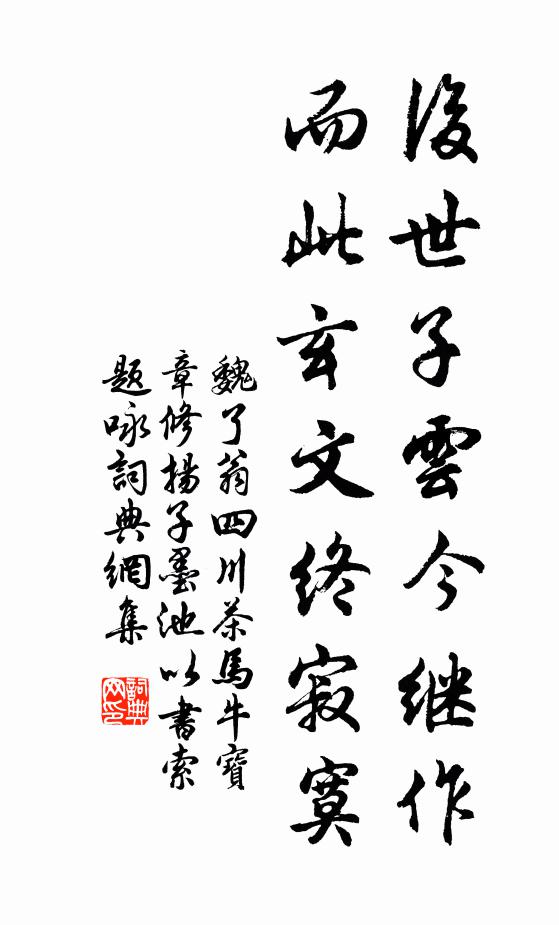 後世子雲今継作
而此玄文終寂寞
魏了翁四川茶馬牛寶
章修揚子墨池以書索
題咏詞典網集
詞典網印